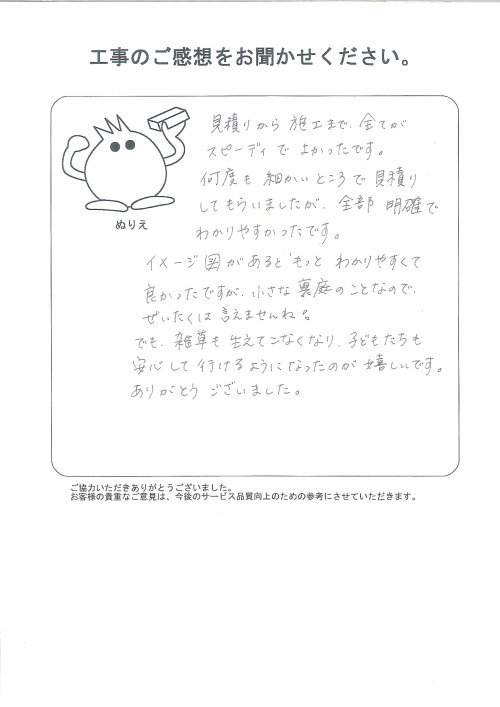 工事のご感想をお聞かせください。
見積りから施工まで、全てが
スピーディでよかったです。
何度も細かいところで見積り
してもらいましたが、全部明確で
わかりやすかったです。
ぬりえ
イメージ図があるともっとわかりやすくて
良かったですが、小さな裏庭のことなので、
ぜいたくは言えませんね。
でも、雑草も生えてこなくなり、子どもたちも
安心して行けるようになったのが嬉しいです。
ありがとうございました。
ご協力いただきありがとうございました。
お客様の貴重なご意見は、今後のサービス品質向上のための参考にさせていただきます。